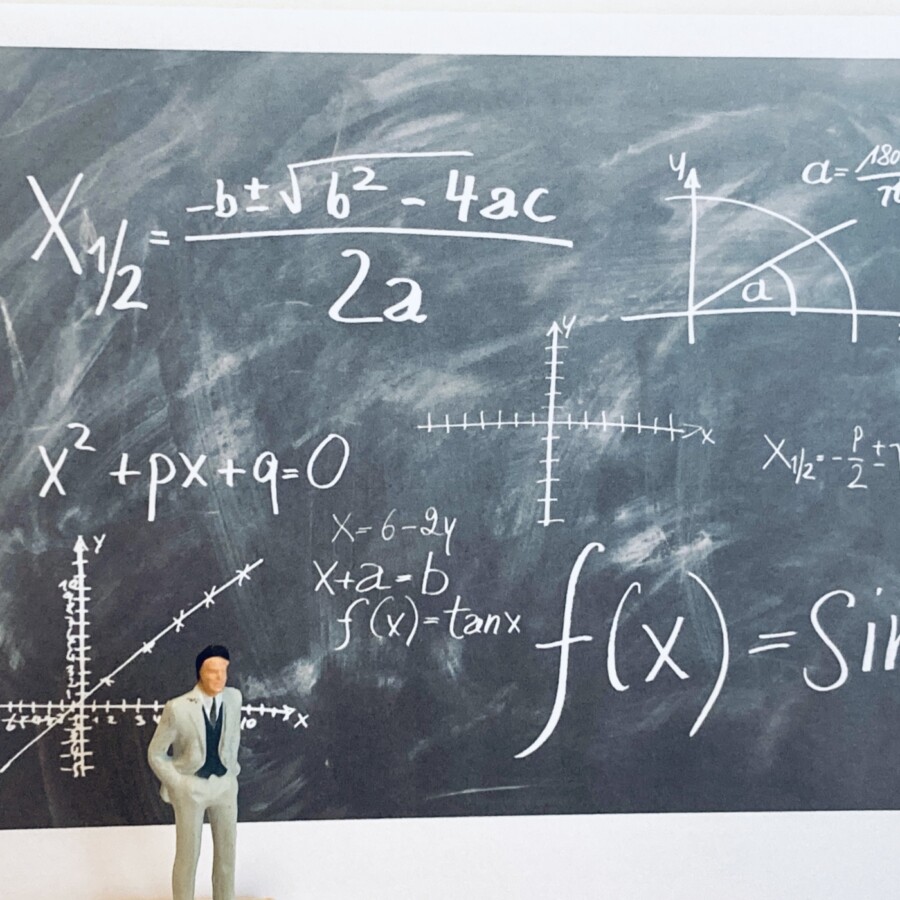 X1/2 = (-b ± √(b² - 4ac)) / 2a
y
a = 180
a
y
x
x² + px + q = 0
X1/2 = - p/2 ±
x = 6 - 2y
x + a = b
f(x) = tan x
f(x) = Sin
y
1 2 3
10 x